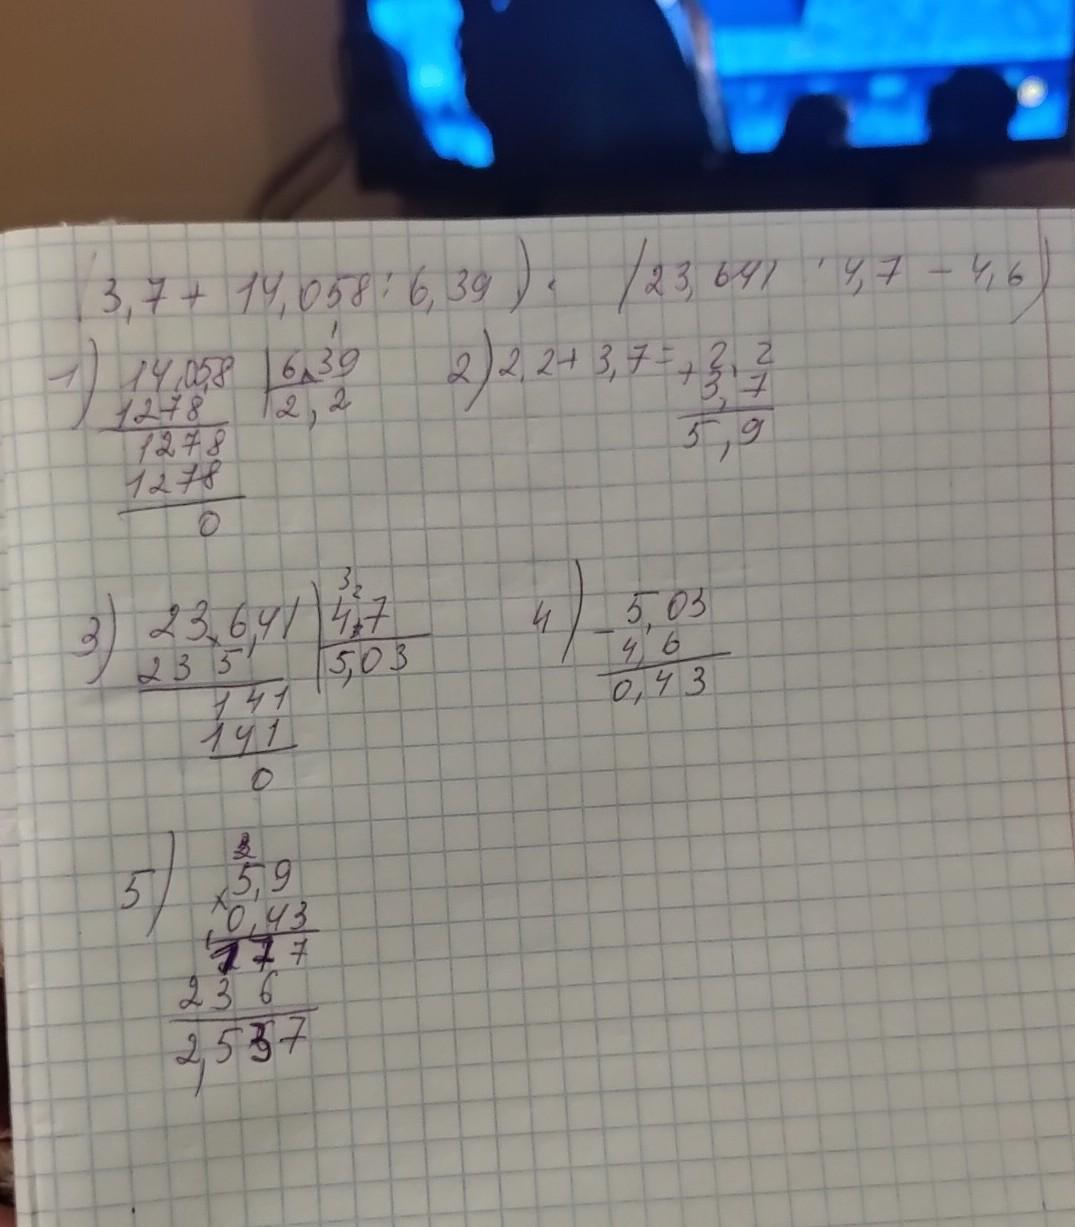 (3,7 + 14,058 : 6,39) · (23,641 : 4,7 - 4,6)
1) 14,058 | 6,39
1278 | 2,2
1278
1278
0
2) 2,2 + 3,7 = + 2,2
3,7
5,9
3) 23,641 | 4,7
235 | 5,03
141
141
0
4) - 5,03
4,6
0,43
5) 5,9
× 0,43
177
236
2,537